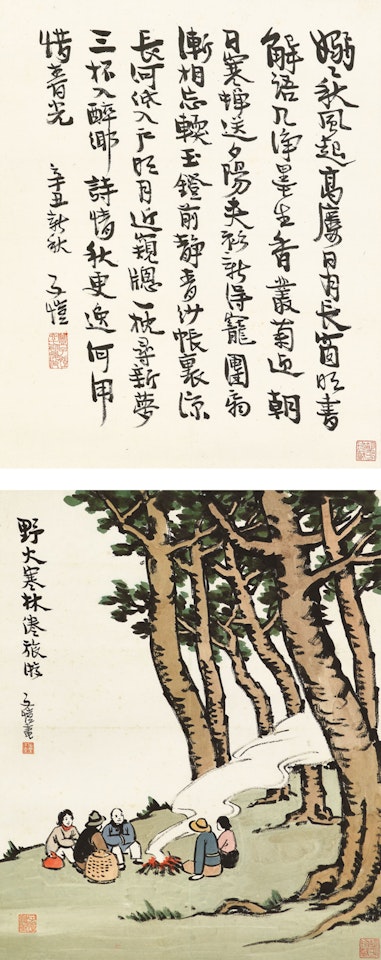 嫋々秋風起高廔日月長窗明書
解語几淨墨生香叢菊近朝
日寒蟬送夕陽夾衫新得寵團扇
漸相忘輭玉鐙前靜青沙帳裏涼
長河低入戶明月近窺牕一枕尋新夢
三杯入醉鄉詩情秋更逸何用
惜春光
辛丑新秋 子愷
野火寒林倦旅
子愷畫